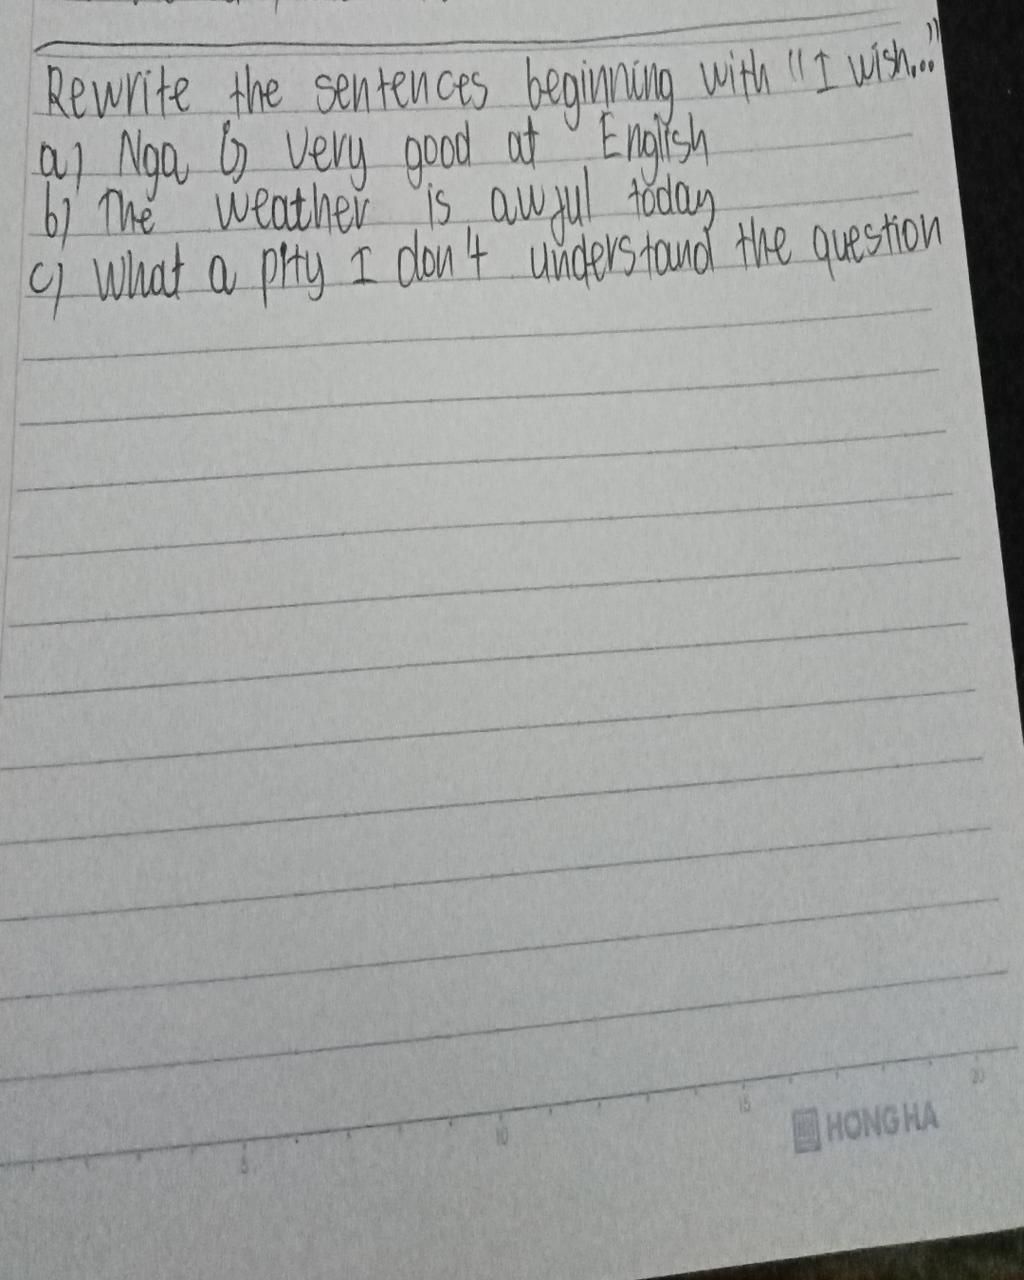 Rewrite the sentences beginning with "I wish..."
a) Nga is very good at English
b) The weather is awful today
c) What a pity I don't understand the question
5 10 15 20
HONG HA